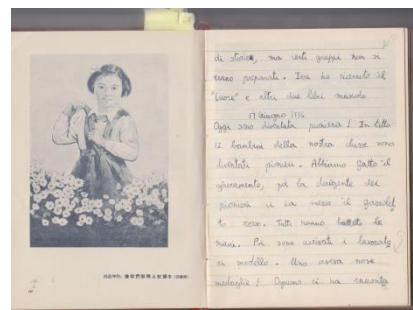 di storia, ma certi gruppi non si
erano preparati. Ina ha ricevuto il
"Cuore" e altri due libri
17 Giugno
Oggi sono diventata pioniera! In tutto
12 bambini della nostra classe sono
diventati pionieri. Abbiamo fatto il
giuramento, poi la dirigente dei
pionieri ci ha messo il
rosso. Tutti hanno battuto le
mani. Poi sono arrivati i lavorato
ri modello. Uno aveva nove
medaglie! Ognuno ci ha